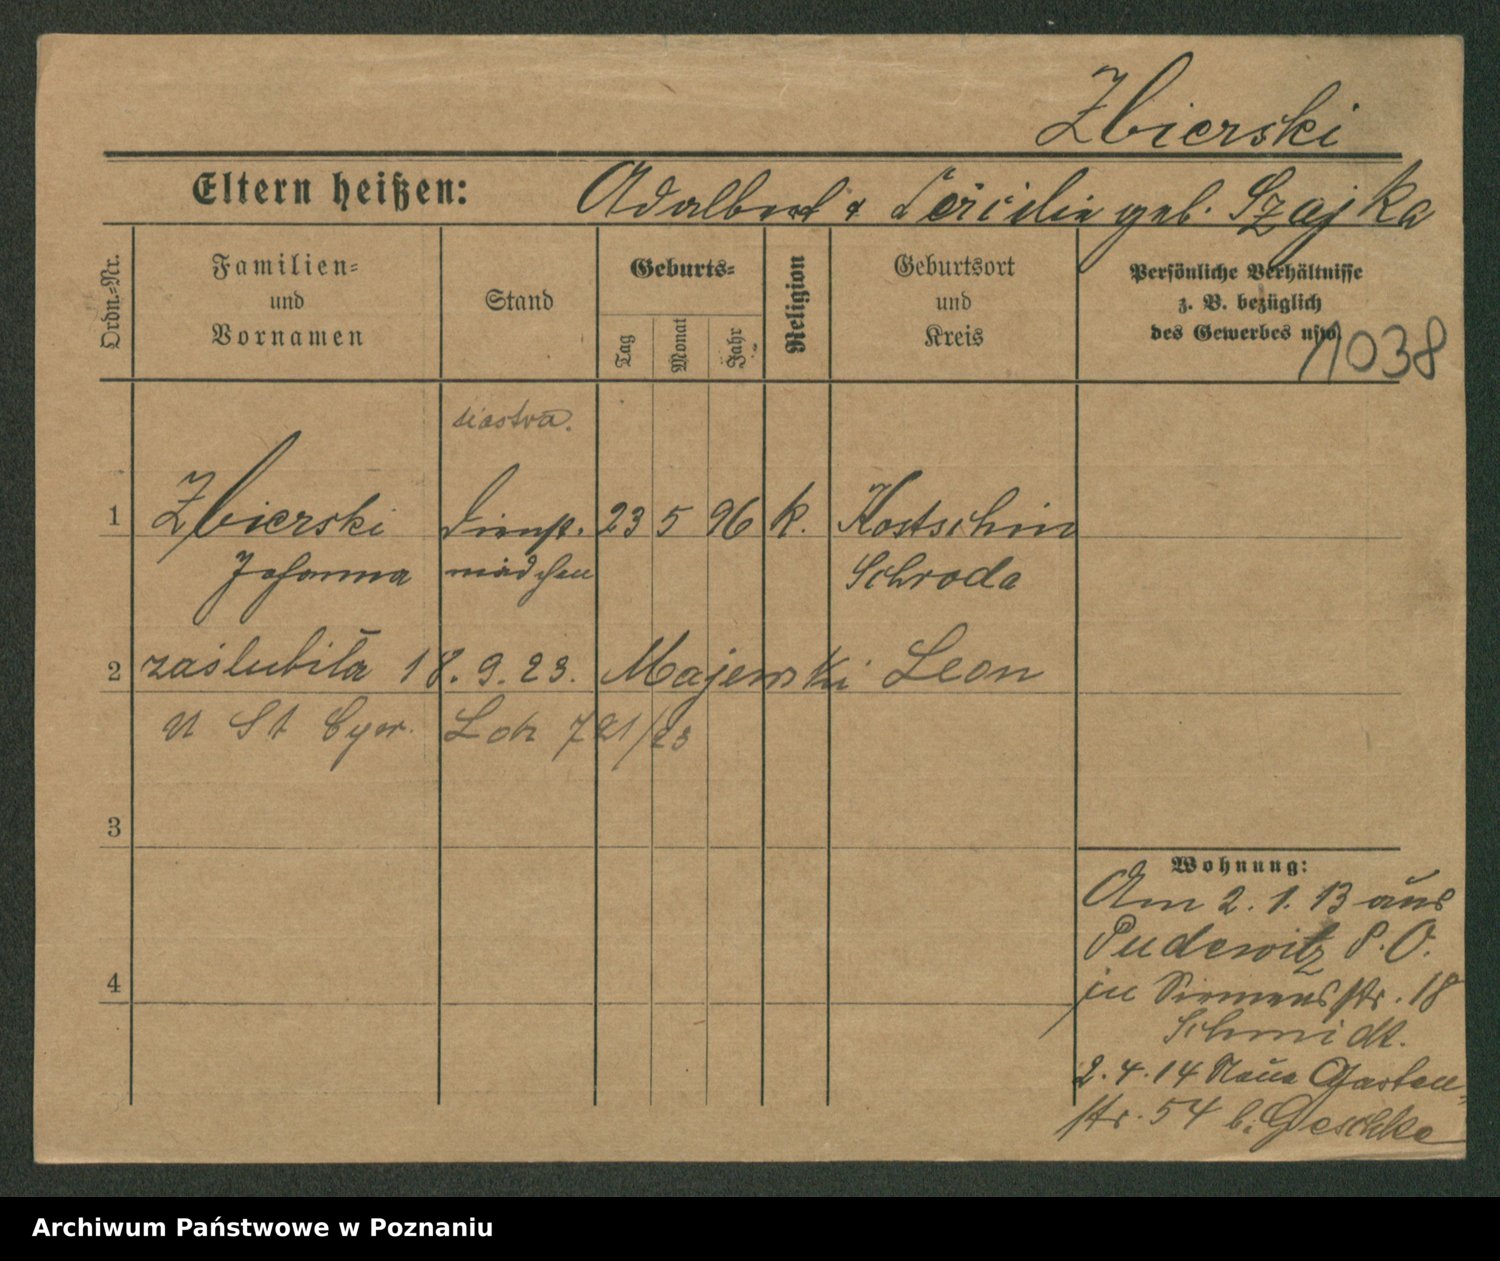 Zbierski
Eltern heißen: Adalbert & Cäcilie geb. Szajka
Ordn.-Nr.
Familien-
und
Vornamen
Stand
Geburts-
Tag
Monat
Jahr
Religion
Geburtsort
und
Kreis
Persönliche Verhältnisse
z. B. bezüglich
des Gewerbes usw.
1038
siostra.
1 Zbierski Dienst- 23 5 96 k. Kostschin
Johanna mädchen Schroda
2 zaślubiła 18.9.23. Majewski Leon
U St Cyw. 721/23
3
4
Wohnung:
Am 2.1.13 aus
Pudewitz P.O.
in Siemensstr. 18
Schmidt.
2.4.14 Neue Garten-
str. 54 b. Geschke
Archiwum Państwowe w Poznaniu